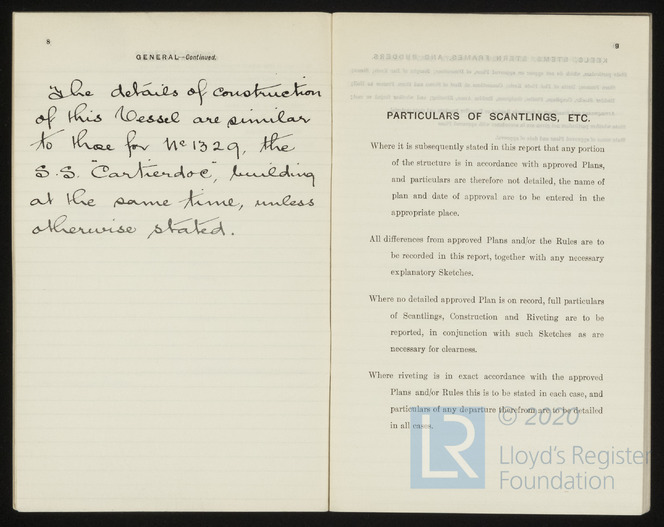 8
GENERAL—Continued.
The details of construction
of this Vessel are similar
to those for No 1329, the
S.S. "Cartierdoc", building
at the same time, unless
otherwise stated.
9
PARTICULARS OF SCANTLINGS, ETC.
Where it is subsequently stated in this report that any portion
of the structure is in accordance with approved Plans,
and particulars are therefore not detailed, the name of
plan and date of approval are to be entered in the
appropriate place.
All differences from approved Plans and/or the Rules are to
be recorded in this report, together with any necessary
explanatory Sketches.
Where no detailed approved Plan is on record, full particulars
of Scantlings, Construction and Riveting are to be
reported, in conjunction with such Sketches as are
necessary for clearness.
Where riveting is in exact accordance with the approved
Plans and/or Rules this is to be stated in each case, and
particulars of any departure therefrom are to be detailed
in all cases.
© 2020
LR
Lloyd's Register
Foundation